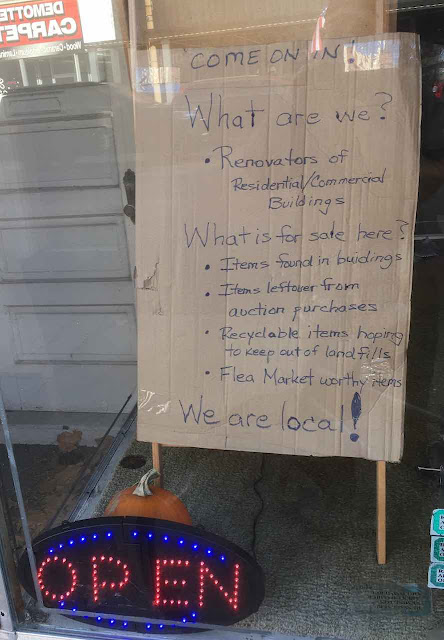 DEMOTTE
CARPET
COME ON IN!
What are we?
• Renovators of
Residential/Commercial
Buildings
What is for sale here?
• Items found in buidings
• Items leftover from
auction purchases
• Recyclable items hoping
to keep out of landfills
• Flea Market worthy items
We are local!
OPEN